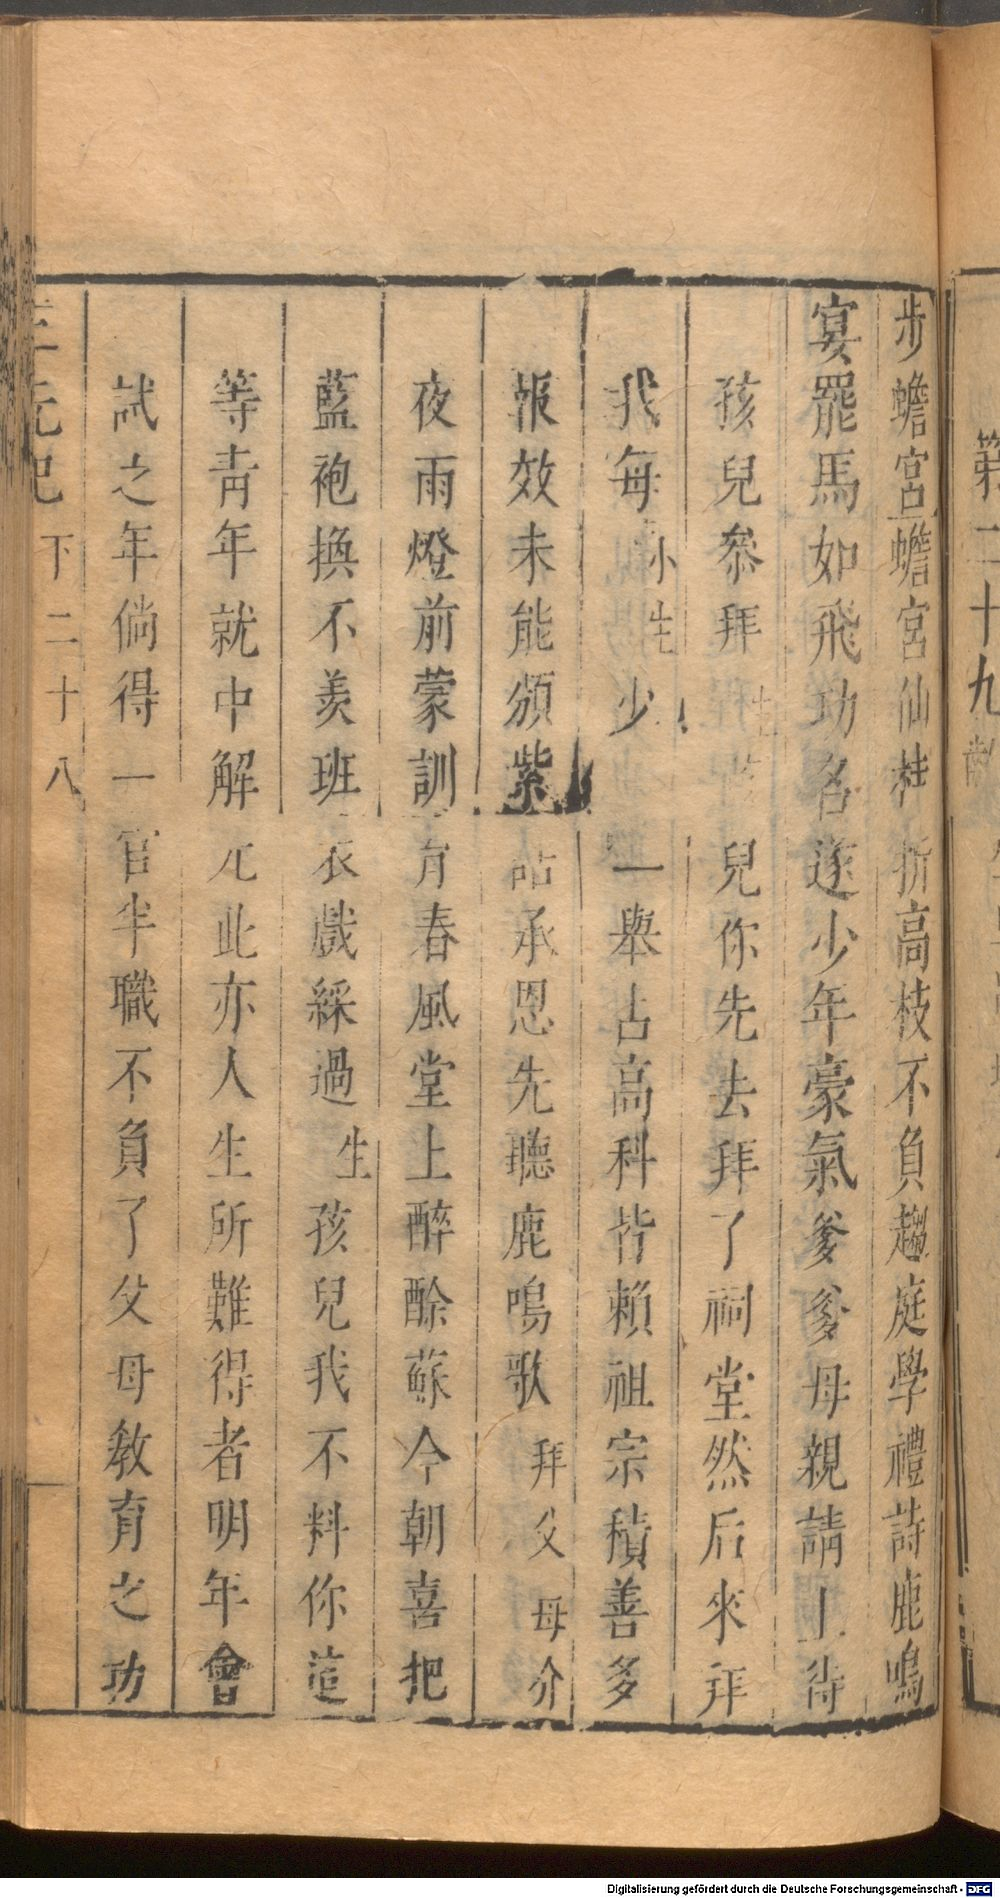 步蟾宮蟾宮仙桂折高枝不負趨庭學禮詩鹿鳴
宴罷馬如飛功名遂少年豪氣爹爹母親請上待
孩兒參拜 生 兒你先去拜了祠堂然后來拜
我每 小生 少 一舉占高科皆賴祖宗積善多
報效未能頒紫詔承恩先聽鹿鳴歌 拜父母介
夜雨燈前蒙訓育春風堂上醉酴蘇今朝喜把
藍袍換不羨班衣戲綵過 生 孩兒我不料你這
等青年就中解元此亦人生所難得者明年會
試之年倘得一官半職不負了父母教育之功
三元記 下 二十八
第二十九
Digitalisierung gefördert durch die Deutsche Forschungsgemeinschaft - DFG